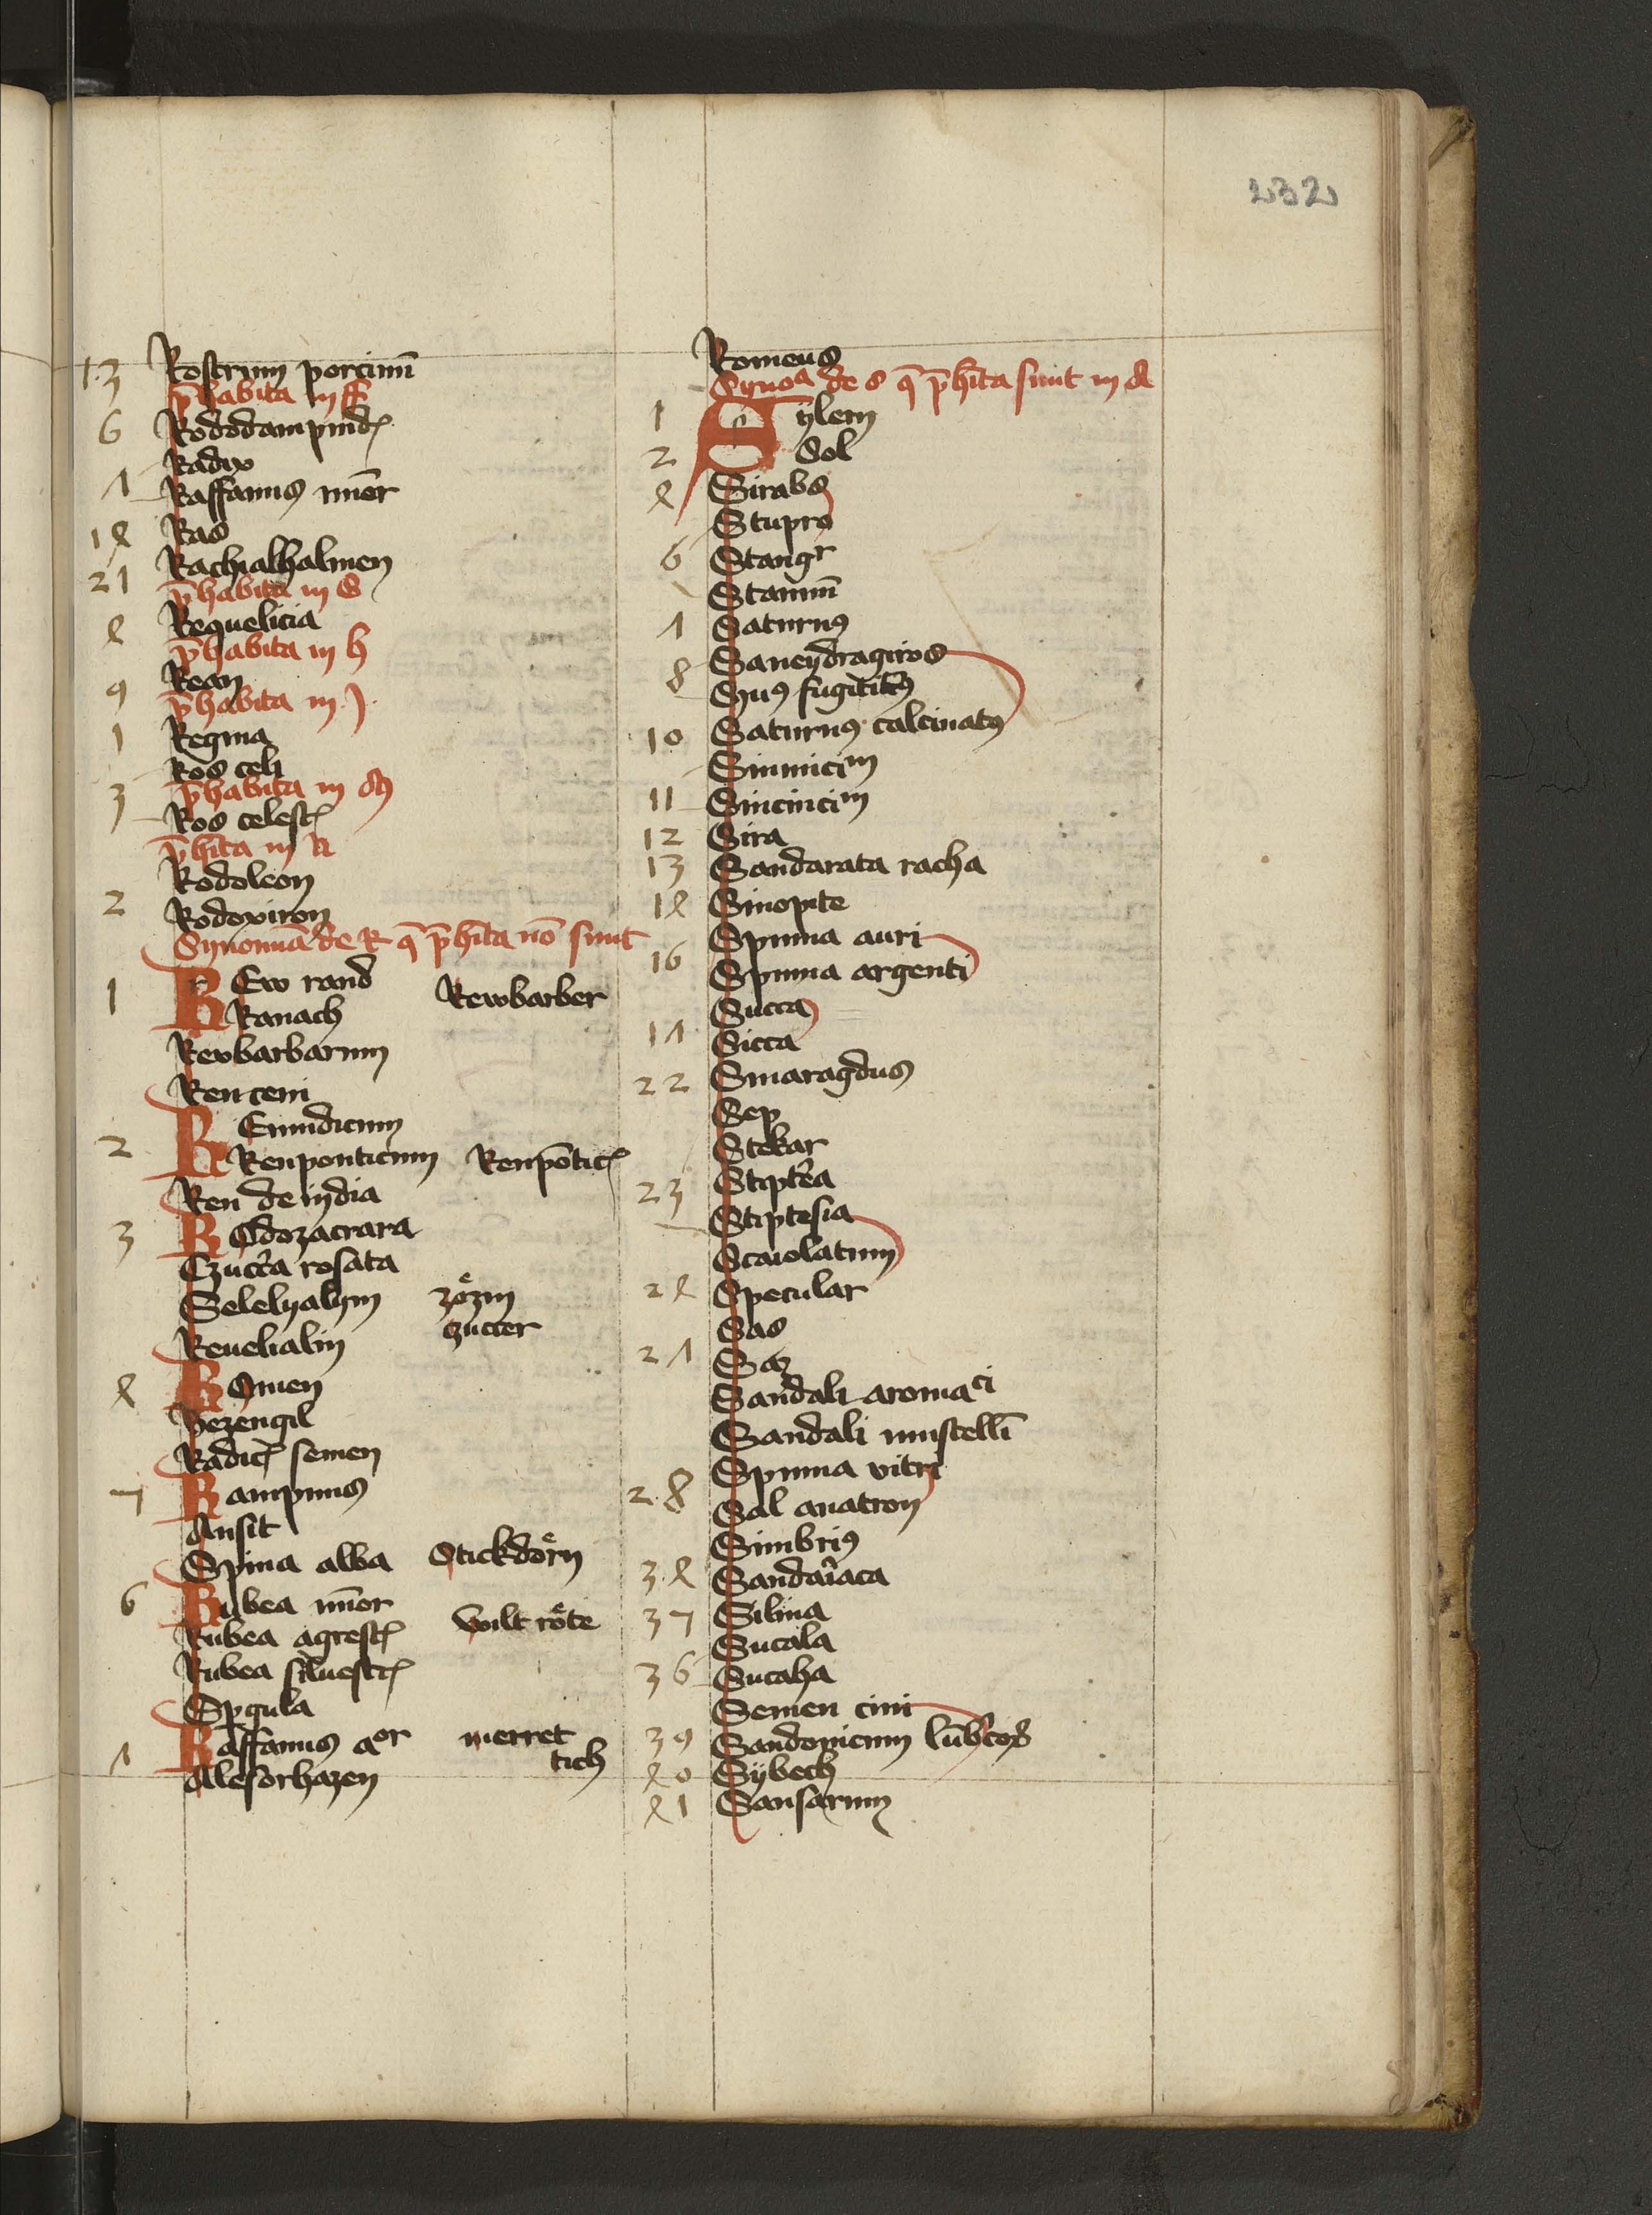 232
13 Rostrum porcinũ
p̄habita in ff
6 Rododampnidꝭ
Radix
Λ Raffanus minor
1ꝭ Ras
Rachialhalmen
21 p̄habita in S
Requelicia
p̄habita in h
Rean
9 p̄habita in J
1 Regina
Ros celi
3 p̄habita in M
Ros celestꝭ
p̄hita in R
Rodoleon
2 Rodoxiron
Synonima de R q̄ p̄hita nō sunt
1 REw rand Rewbarber
Ranach
Reubarbarum
Ren ceni
2 REnindicum
Renponticum Renpōticꝭ
Ren de india
3 ROdozacrara
Czucc̃a rosata
Selelyalym zoͤzin
czucter
Reuelialin
ROmen
Bezengil
Radicꝭ semen
7 Rampnus
Ansit
Spina alba Stickdoͤrn
6 Rubea minor
Rubea agrestꝭ wilt roͤte
Rubea siluestrꝭ
Spgula
Λ Raffanus aor merret
tich
Alesorhazen
Romeus
Synoa de s q̄ p̄hita sunt in A
1 Sylem
2 Sol
Sirabs
Stupro
6 Stangr
Stannũ
Λ Saturnꝰ
8 Saneydragiros
Suꝰ fugitiuꝰ
10 Saturnꝰ calcinatꝰ
Sinnicim
11 Sincincim
12 Sira
13 Sandarata racha
Sinopite
16 Spuma auri
Spuma argenti
Succa
1Λ Sicca
22 Smaragdus
Sep
Stekar
23 Stipt̃ea
Stiptesia
Scaiolatum
Specular
Sas
2Λ Saz
Sandali aromaci
Sandali mustelli
28 Spuma vitri
Sal anatron
Simbriꝰ
Sandar̃aca
37 Silina
Sucala
36 Sucaha
Semen cini
39 Sandonicum lũb̃cos
Sybech
Sansarum